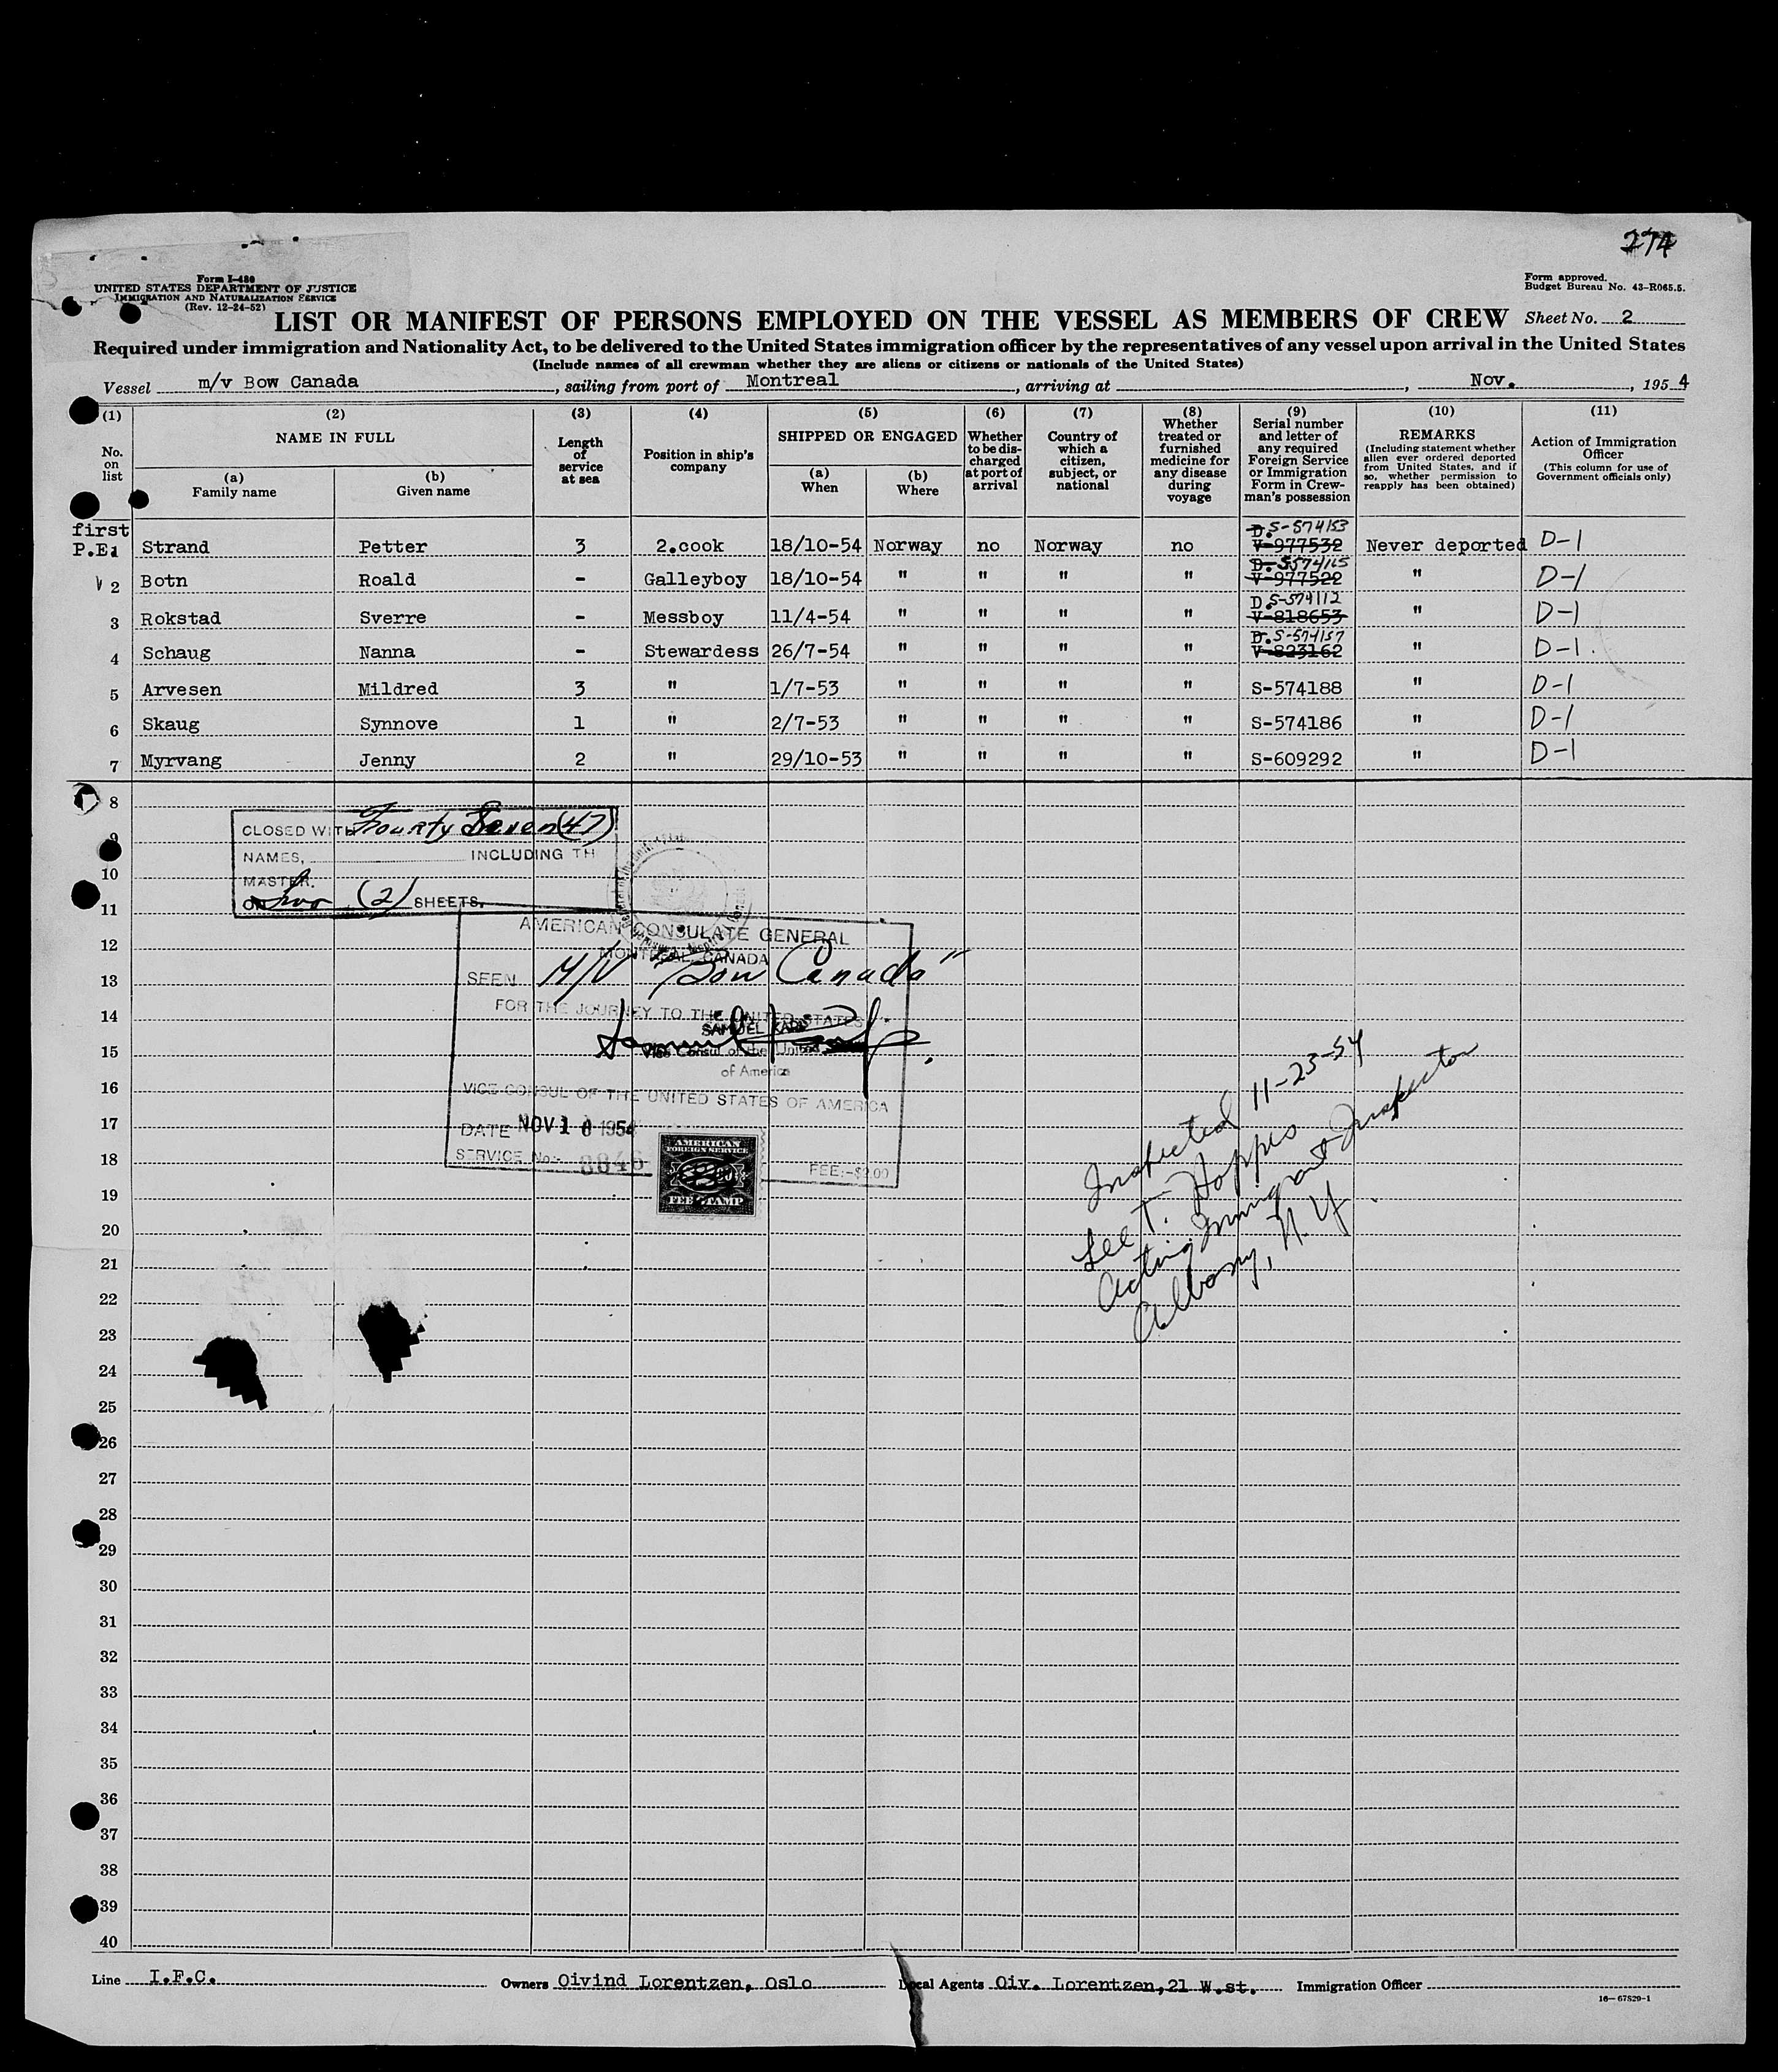 274
Form I-480
UNITED STATES DEPARTMENT OF JUSTICE
IMMIGRATION AND NATURALIZATION SERVICE
(Rev. 12-24-52)
Form approved.
Budget Bureau No. 43-R065.5.
LIST OR MANIFEST OF PERSONS EMPLOYED ON THE VESSEL AS MEMBERS OF CREW Sheet No. 2
Required under immigration and Nationality Act, to be delivered to the United States immigration officer by the representatives of any vessel upon arrival in the United States
(Include names of all crewman whether they are aliens or citizens or nationals of the United States)
Vessel m/v Bow Canada, sailing from port of Montreal, arriving at , Nov. , 1954
(1) (2) (3) (4) (5) (6) (7) (8) (9) (10) (11)
No. on list
NAME IN FULL
(a) Family name
(b) Given name
Length of service at sea
Position in ship's company
SHIPPED OR ENGAGED
(a) When
(b) Where
Whether to be discharged at port of arrival
Country of which a citizen, subject, or national
Whether treated or furnished medicine for any disease during voyage
Serial number and letter of any required Foreign Service or Immigration Form in Crewman's possession
REMARKS
(Including statement whether alien ever ordered deported from United States, and if so, whether permission to reapply has been obtained)
Action of Immigration Officer
(This column for use of Government officials only)
first
P.E. 1 Strand Petter 3 2.cook 18/10-54 Norway no Norway no D.S-574153 V-977532 Never deported D-1
V 2 Botn Roald - Galleyboy 18/10-54 " " " " D.S574165 V-977522 " D-1
3 Rokstad Sverre - Messboy 11/4-54 " " " " D.S-574112 V-818653 " D-1
4 Schaug Nanna - Stewardess 26/7-54 " " " " D.S-574157 V-823162 " D-1.
5 Arvesen Mildred 3 " 1/7-53 " " " " S-574188 " D-1
6 Skaug Synnove 1 " 2/7-53 " " " " S-574186 " D-1
7 Myrvang Jenny 2 " 29/10-53 " " " " S-609292 " D-1
8
9
10
11
12
13
14
15
16
17
18
19
20
21
22
23
24
25
26
27
28
29
30
31
32
33
34
35
36
37
38
39
40
CLOSED WITH Fourty Seven (47)
NAMES, INCLUDING TH
MASTER.
ON two (2) SHEETS.
AMERICAN CONSULATE GENERAL
MONTREAL, CANADA
SEEN M/V "Bow Canada"
FOR THE JOURNEY TO THE UNITED STATES
SAMUEL KARP
Vice Consul of the United States
of America
VICE CONSUL OF THE UNITED STATES OF AMERICA
DATE NOV 1 8 1954
SERVICE No:- 8846
FEE:-$2.00
AMERICAN
FOREIGN SERVICE
FEE STAMP
Inspected 11-23-54
Lee T. Hoppes
Acting Immigrant Inspector
Albany, N.Y.
Line I.F.C. Owners Oivind Lorentzen, Oslo Local Agents Oiv. Lorentzen, 21 W.st. Immigration Officer
16—67829-1